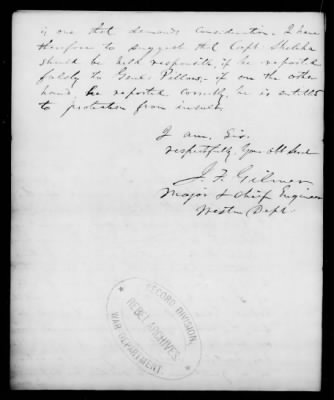 is one that demands consideration. I have
therefore to suggest that Capt
should be held responsible, if he reported
falsely to Genl. Pillow; if on the other
hand, he reported correctly, he is entitled
to protection from insult.
I am, Sir,
respectfully, Your obt Servt
J. F. Gilmer
Major & Chief Engineer
Western Dept.
RECORD DIVISION,
REBEL ARCHIVES,
WAR DEPARTMENT.